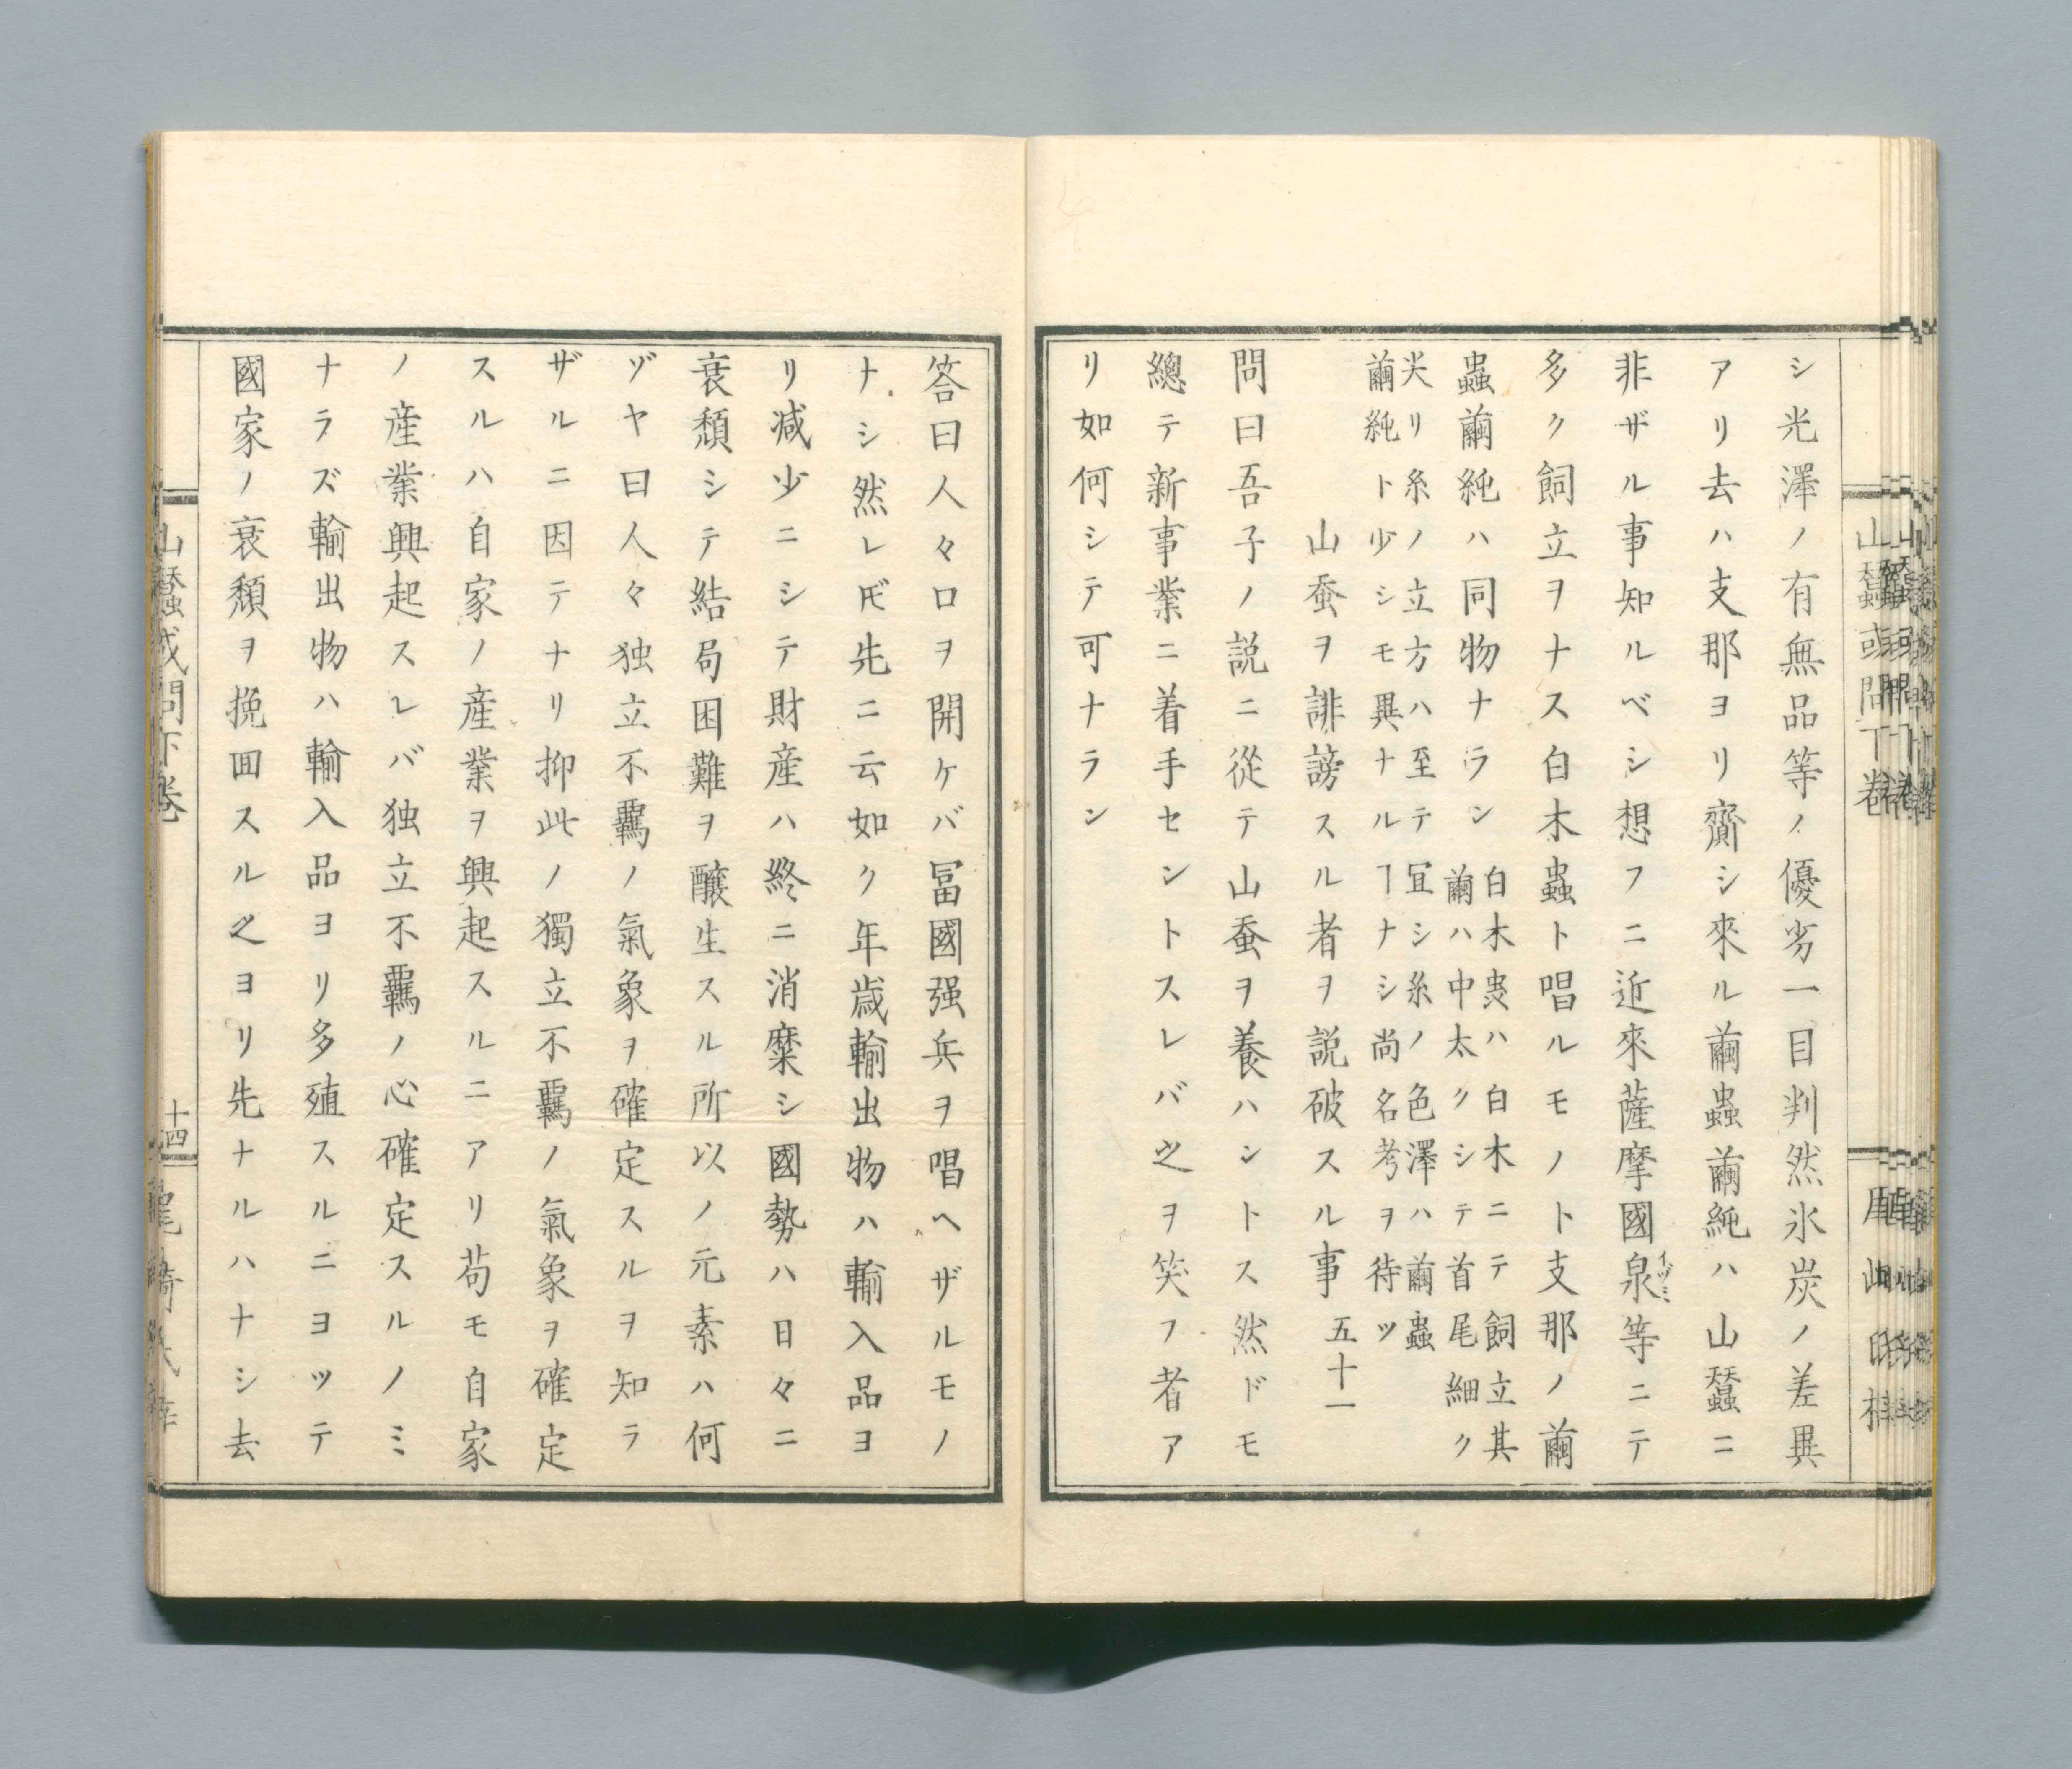 シ光澤ノ有無品等ノ優劣一目判然氷炭ノ差異
アリ去ハ支那ヨリ齎シ來ル繭蟲繭純ハ山蠶ニ
非ザル事知ルベシ想フニ近來薩摩國泉等ニテ
イヅミ
多ク飼立ヲナス白木蟲ト唱ルモノト支那ノ繭
蟲繭純ハ同物ナラン
白木蛬ハ白木ニテ飼立其
繭ハ中太クシテ首尾細ク
尖リ糸ノ立方ハ至テ冝シ糸ノ色澤ハ繭蟲
繭純ト少シモ異ナルヿナシ尚名考ヲ待ツ
山蚕ヲ誹謗スル者ヲ説破スル事 五十一
問曰吾子ノ説ニ從テ山蚕ヲ養ハシトス然ドモ
總テ新事業ニ着手セントスレバ之ヲ笑フ者ア
リ如何シテ可ナラン
答曰人々口ヲ開ケバ冨國强兵ヲ唱ヘザルモノ
ナシ然レ𪜈先ニ云如ク年歳輸出物ハ輸入品ヨ
リ减少ニシテ財産ハ終ニ消糜シ國勢ハ日々ニ
衰頽シテ結局困難ヲ釀生スル所以ノ元素ハ何
ヅヤ曰人々独立不羈ノ氣象ヲ確定スルヲ知ラ
ザルニ因テナリ抑此ノ獨立不羈ノ氣象ヲ確定
スルハ自家ノ産業ヲ興起スルニアリ苟モ自家
ノ産業興起スレバ独立不羈ノ心確定スルノミ
ナラズ輸出物ハ輸入品ヨリ多殖スルニヨッテ
國家ノ衰頽ヲ挽回スル之ヨリ先ナルハナシ去
山蠶或問下巻
十四